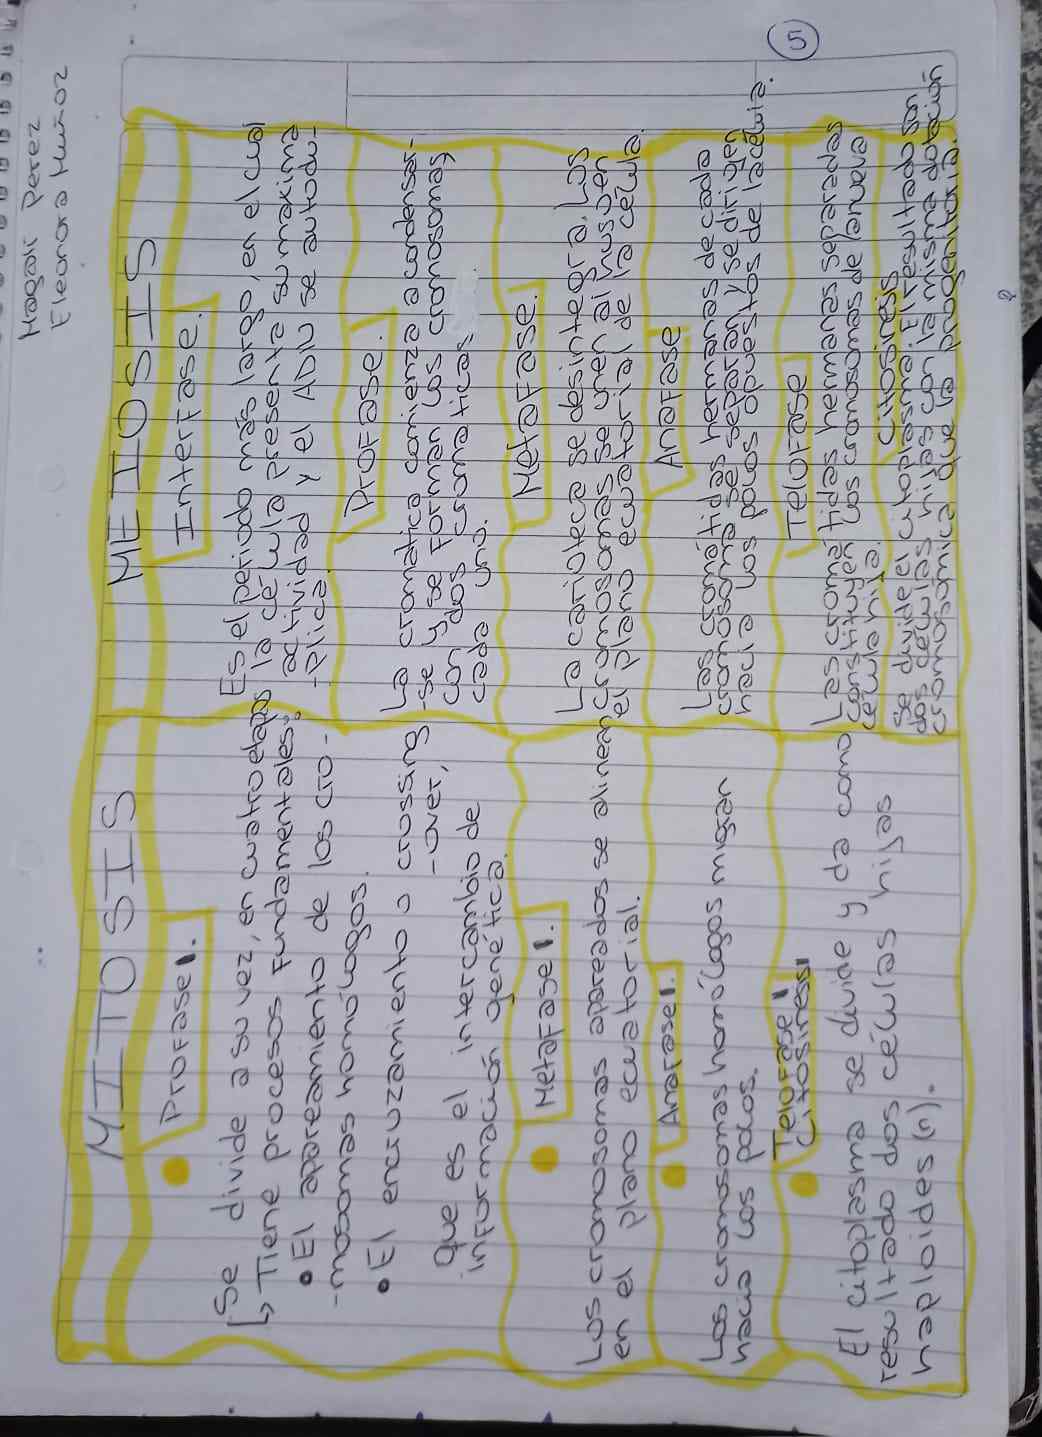 Magali Perez
Eleonora Muñoz
5
MITOSIS
Profase 1.
Se divide a su vez, en cuatro etapas
↳ Tiene procesos fundamentales:
• El apareamiento de los cro-
-mosomas homólogos.
• El encruzamiento o crossing
-over,
que es el intercambio de
información genética.
Metafase 1.
Los cromosomas apareados se alinean
en el plano ecuatorial.
Anafase 1.
Los cromosomas homólogos migran
hacia los polos.
Telofase 1
Citosinesis
El citoplasma se divide y da como
resultado dos células hijas
haploides (n).
MEIOSIS
Interfase.
Es el periodo más largo, en el cual
la célula presenta su maxima
actividad y el ADN se autodu-
-plica.
Profase.
La cromatica comienza a condensar-
-se y se forman los cromosomas,
con dos cromaticas
cada uno.
Metafase.
La carioteca se desintegra. Los
cromosomas se unen al huso en
el plano ecuatorial de la célula.
Anafase
Las cromátidas hermanas de cada
cromosoma se separan y se dirigen
hacia los polos opuestos de la célula.
Telofase
Las cromátidas hermanas separadas
constituyen los cromosomas de la nueva
célula hija.
Citosinesis
Se divide el citoplasma. El resultado son
dos células hijas con la misma dotación
cromosómica que la progenitoria.